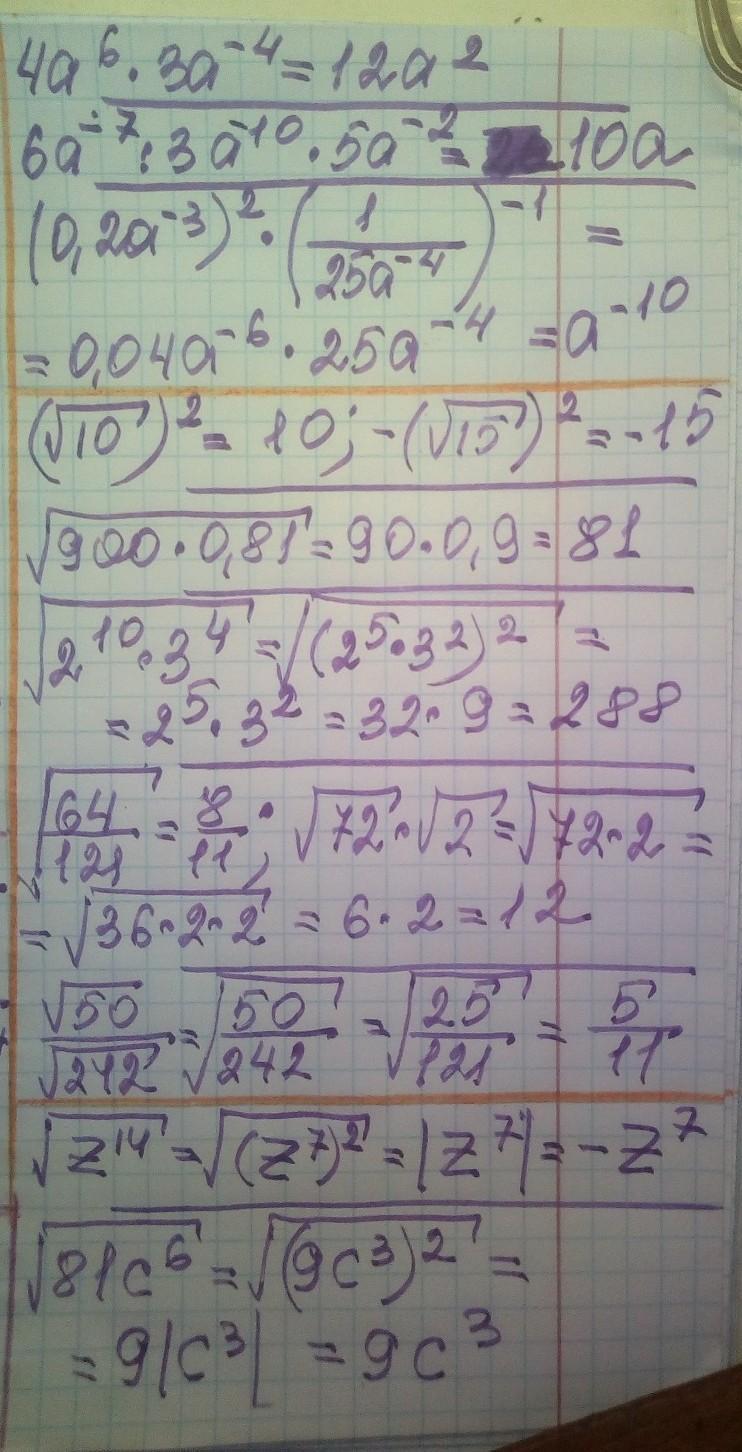 4a⁶·3a⁻⁴=12a²
6a⁻⁷:3a⁻¹⁰·5a⁻²=10a
(0,2a⁻³)²·(1/25a⁻⁴)⁻¹=
=0,04a⁻⁶·25a⁻⁴=a⁻¹⁰
(√10)²=10;-(√15)²=-15
√900·0,81=90·0,9=81
√2¹⁰·3⁴=√(2⁵·3²)²=
=2⁵·3²=32·9=288
√64/121=8/11; √72·√2=√72·2=
=√36·2·2=6·2=12
√50/√242=√50/242=√25/121=5/11
√z¹⁴=√(z⁷)²=|z⁷|=-z⁷
√81c⁶=√(9c³)²=
=9|c³|=9c³